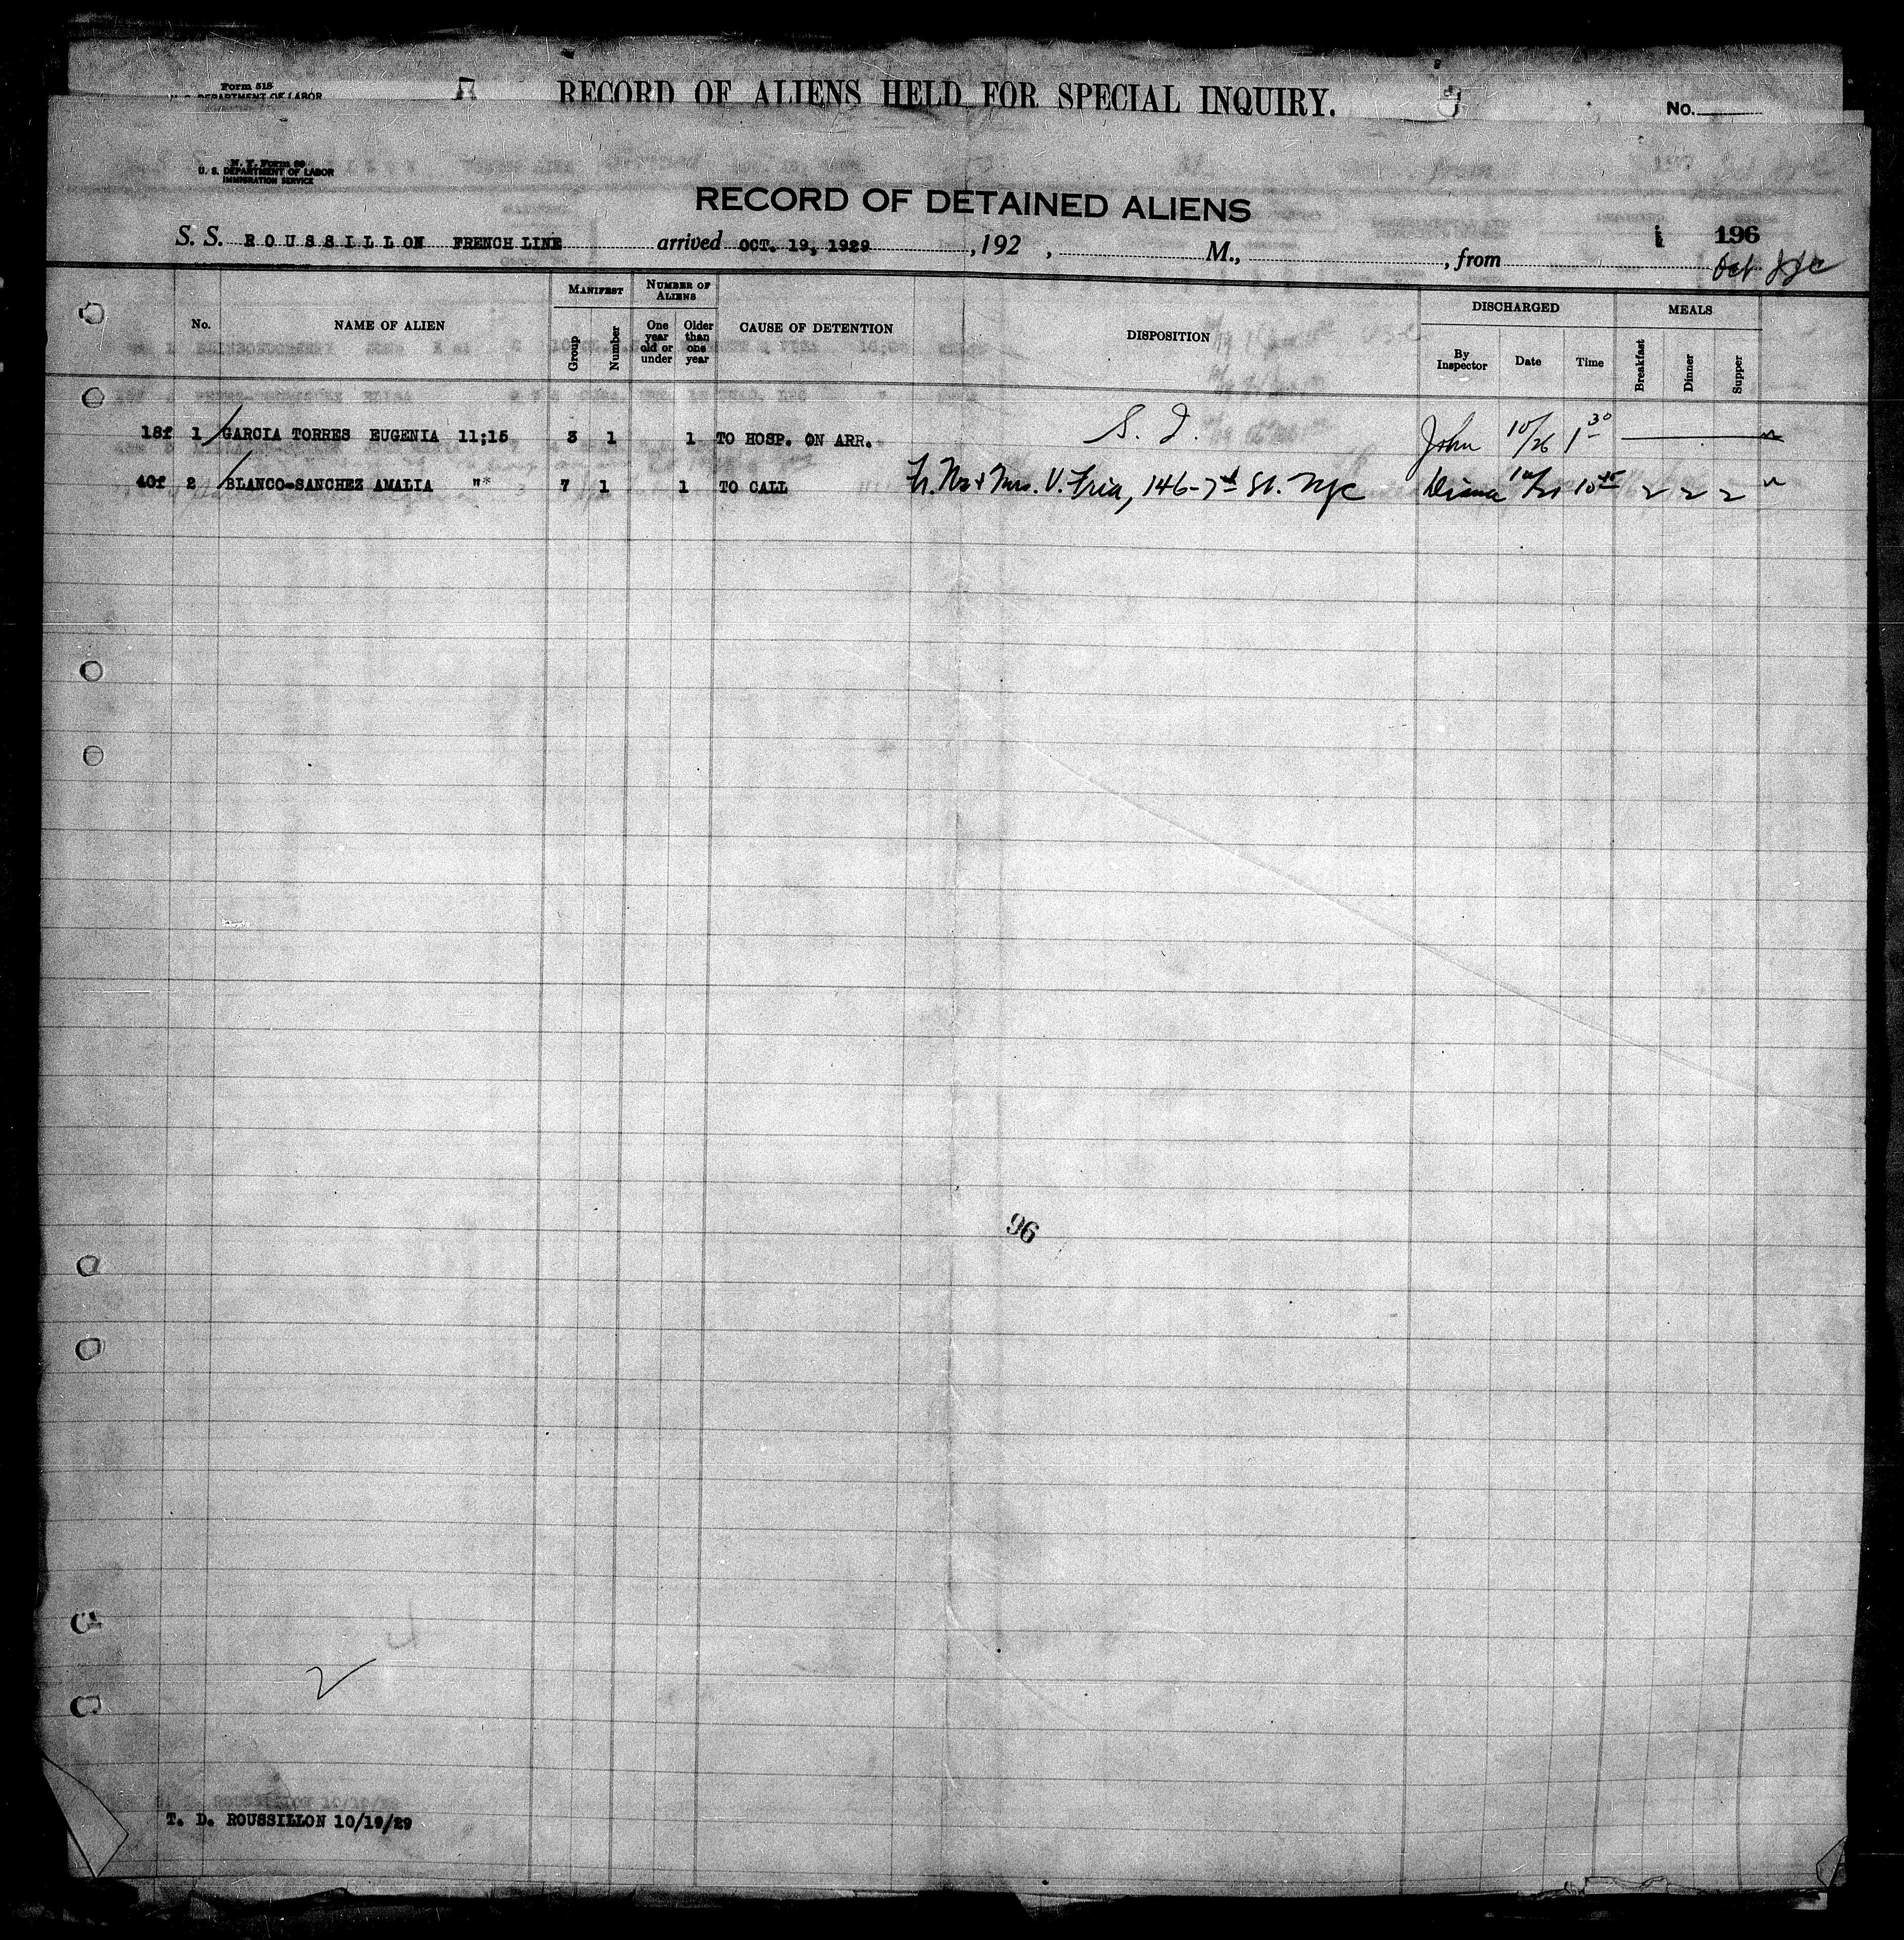 Form 515
U. S. DEPARTMENT OF LABOR
RECORD OF ALIENS HELD FOR SPECIAL INQUIRY.
No.
N. Y. Form 60
U. S. DEPARTMENT OF LABOR
IMMIGRATION SERVICE
RECORD OF DETAINED ALIENS
196
S. S. ROUSSILLON FRENCH LINE arrived OCT. 19, 1929, 192 , M., , from
Oct
No. NAME OF ALIEN MANIFEST Group Number NUMBER OF ALIENS One year old or under Older than one year CAUSE OF DETENTION DISPOSITION DISCHARGED By Inspector Date Time MEALS Breakfast Dinner Supper
18f 1 GARCIA TORRES EUGENIA 11;15 3 1 1 TO HOSP. ON ARR. S. I. John 10/26 1 30
40f 2 BLANCO-SANCHEZ AMALIA "" 7 1 1 TO CALL Mrs. V. Fria, 146-7 St. NYC 10 45 2 2 2
96
2
T. D. ROUSSILLON 10/19/29